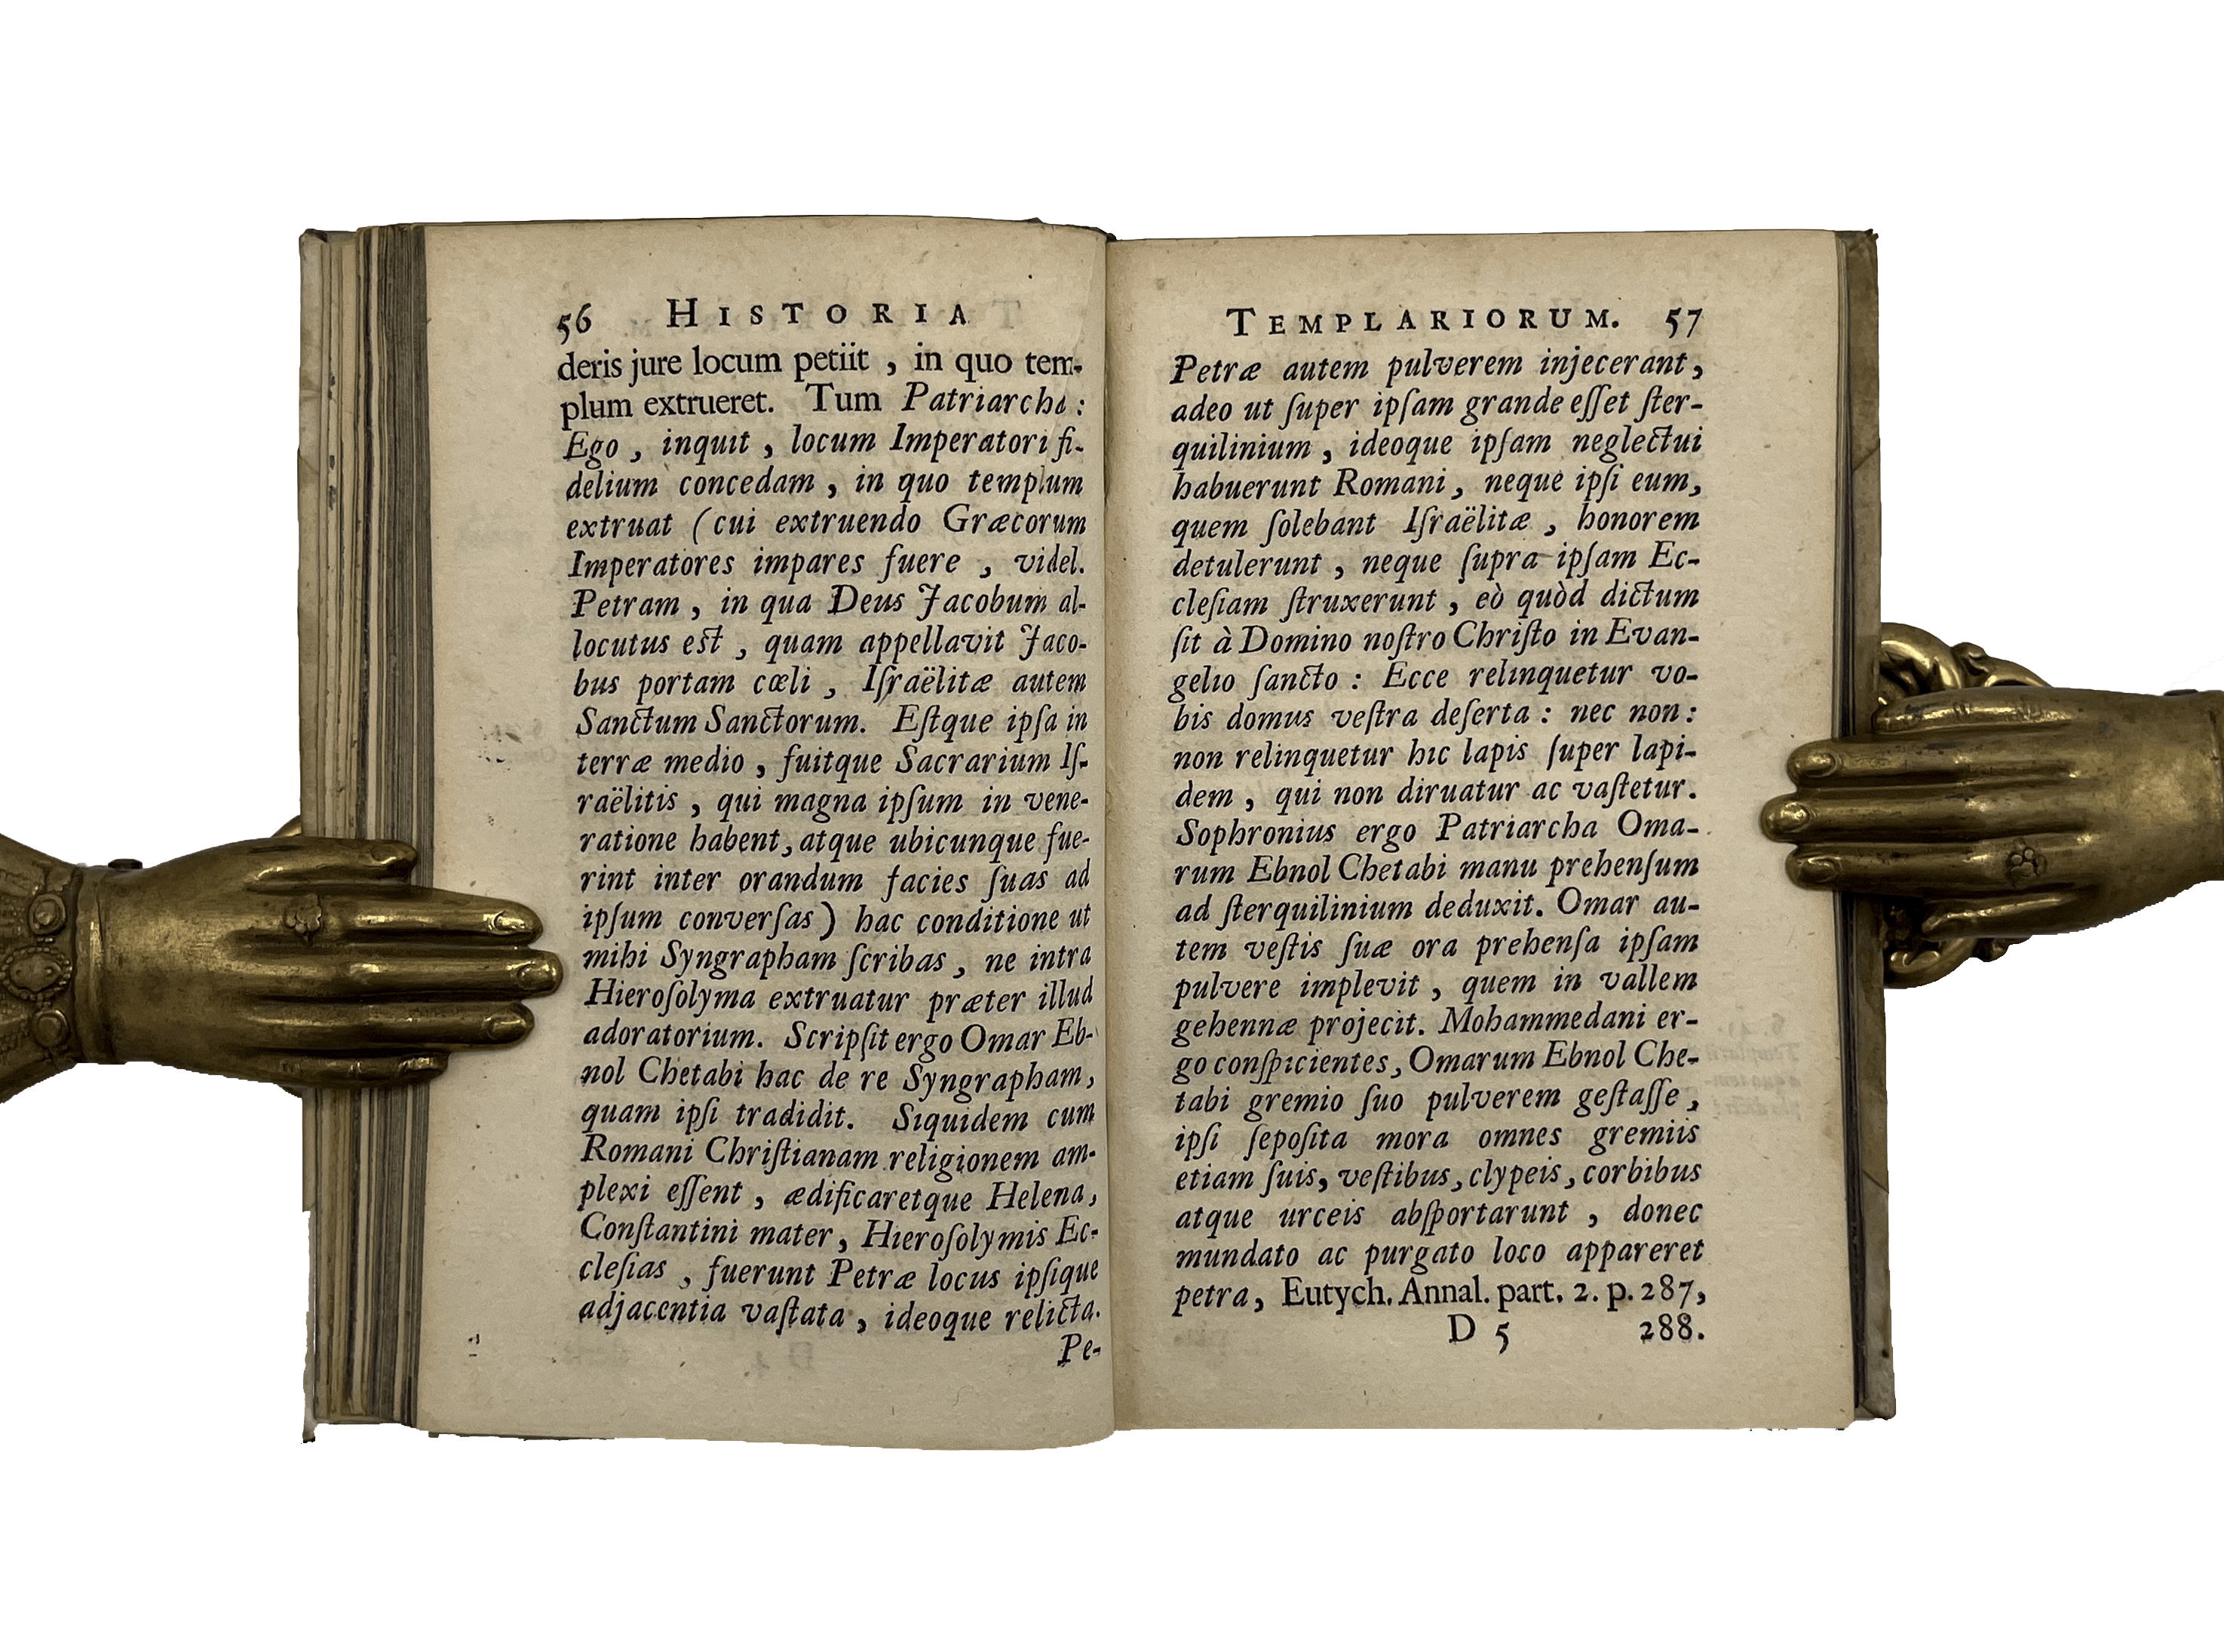 56 HISTORIA
deris jure locum petiit , in quo tem-
plum extrueret. Tum Patriarcha :
Ego , inquit , locum Imperatori fi-
delium concedam , in quo templum
extruat (cui extruendo Græcorum
Imperatores impares fuere , videl.
Petram , in qua Deus Jacobum al-
locutus eſt , quam appellavit Jaco-
bus portam cœli , Iſraëlitæ autem
Sanctum Sanctorum. Eſtque ipſa in
terræ medio , fuitque Sacrarium Iſ-
raëlitis , qui magna ipſum in vene-
ratione habent, atque ubicunque fue-
rint inter orandum facies ſuas ad
ipſum converſas) hac conditione ut
mihi Syngrapham ſcribas , ne intra
Hieroſolyma extruatur præter illud
adoratorium. Scripſit ergo Omar Eb-
nol Chetabi hac de re Syngrapham,
quam ipſi tradidit. Siquidem cum
Romani Chriſtianam religionem am-
plexi eſſent , ædificaretque Helena,
Conſtantini mater, Hieroſolymis Ec-
cleſias , fuerunt Petræ locus ipſique
adjacentia vaſtata , ideoque relicta.
Pe-
TEMPLARIORUM. 57
Petræ autem pulverem injecerant,
adeo ut ſuper ipſam grande eſſet ſter-
quilinium , ideoque ipſam neglectui
habuerunt Romani , neque ipſi eum,
quem ſolebant Iſraëlitæ , honorem
detulerunt , neque ſupra ipſam Ec-
cleſiam ſtruxerunt , eò quòd dictum
ſit à Domino noſtro Chriſto in Evan-
gelio ſancto : Ecce relinquetur vo-
bis domus veſtra deſerta : nec non :
non relinquetur hic lapis ſuper lapi-
dem , qui non diruatur ac vaſtetur.
Sophronius ergo Patriarcha Oma-
rum Ebnol Chetabi manu prehenſum
ad ſterquilinium deduxit. Omar au-
tem veſtis ſuæ ora prehenſa ipſam
pulvere implevit , quem in vallem
gehennæ projecit. Mohammedani er-
go conſpicientes, Omarum Ebnol Che-
tabi gremio ſuo pulverem geſtaſſe ,
ipſi ſepoſita mora omnes gremiis
etiam ſuis, veſtibus, clypeis, corbibus
atque urceis abſportarunt , donec
mundato ac purgato loco appareret
petra, Eutych. Annal. part. 2. p. 287,
D 5 288.